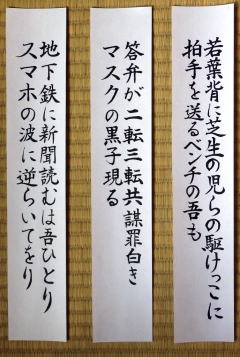 若葉背に芝生の児らの駆けっこに
拍手を送るベンチの吾も
答弁が二転三転共謀罪白き
マスクの黒子現る
地下鉄に新聞読むは吾ひとり
スマホの波に逆らいてをり